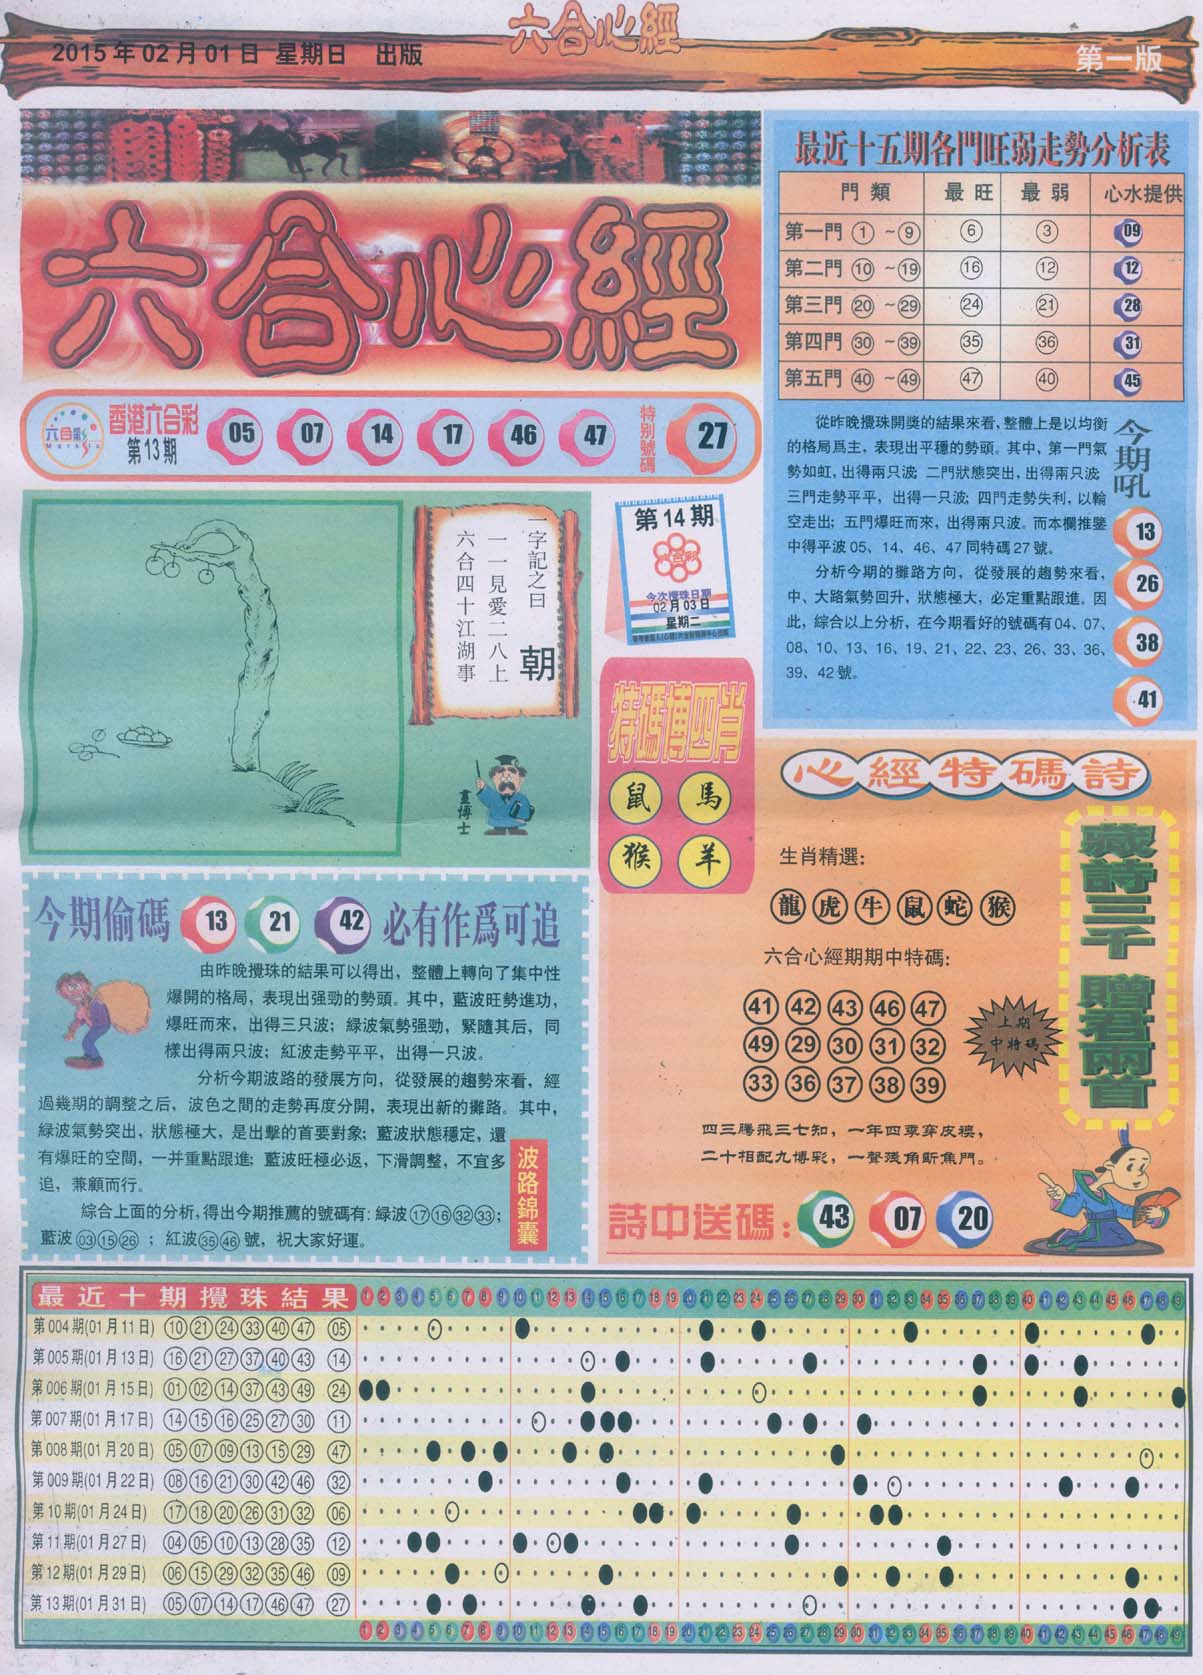 六合心經
2015年02月01日 星期日 出版
第一版
六合心經
六合彩
香港六合彩
第13期
05 07 14 17 46 47
特别號碼
27
最近十五期各門旺弱走勢分析表
門類 最旺 最弱 心水提供
第一門 ① ~ ⑨ ⑥ ③ 09
第二門 ⑩ ~ ⑲ ⑯ ⑫ 12
第三門 ⑳ ~ ㉙ ㉔ ㉑ 28
第四門 ㉚ ~ ㊴ ㉟ ㊱ 31
第五門 ㊵ ~ ㊾ ㊼ ㊵ 45
從昨晚攪珠開獎的結果來看，整體上是以均衡
的格局爲主，表現出平穩的勢頭。其中，第一門氣
勢如虹，出得兩只波；二門狀態突出，出得兩只波
三門走勢平平，出得一只波；四門走勢失利，以輪
空走出；五門爆旺而來，出得兩只波。而本欄推鑒
中得平波05、14、46、47同特碼27號。
分析今期的攤路方向，從發展的趨勢來看，
中、大路氣勢回升，狀態極大，必定重點跟進。因
此，綜合以上分析，在今期看好的號碼有04、07、
08、10、13、16、19、21、22、23、26、33、36、
39、42號。
今期吼
13
26
38
41
一字記之曰 朝
一一見愛二八上
六合四十江湖事
畫博士
第14期
六合彩
今次攪珠日期
02月03日
星期二
特碼博四肖
鼠 馬
猴 羊
心經特碼詩
藏詩三千 贈君兩首
生肖精選：
龍 虎 牛 鼠 蛇 猴
六合心經期期中特碼：
41 42 43 46 47
49 29 30 31 32
33 36 37 38 39
上期
中特碼
四三騰飛三七知，一年四季穿皮襖，
二十相配九博彩，一聲殘角斷焦門。
詩中送碼： 43 07 20
今期偷碼 13 21 42 必有作爲可追
由昨晚攪珠的結果可以得出，整體上轉向了集中性
爆開的格局，表現出强勁的勢頭。其中，藍波旺勢進功，
爆旺而來，出得三只波；緑波氣勢强勁，緊隨其后，同
樣出得兩只波；紅波走勢平平，出得一只波。
分析今期波路的發展方向，從發展的趨勢來看，經
過幾期的調整之后，波色之間的走勢再度分開，表現出新的攤路。其中，
緑波氣勢突出，狀態極大，是出擊的首要對象；藍波狀態穩定，還
有爆旺的空間，一并重點跟進；藍波旺極必返，下滑調整，不宜多
追，兼顧而行。
綜合上面的分析，得出今期推薦的號碼有：緑波⑰⑯㉜㉝；
藍波03 15 26；紅波㉟㊻號，祝大家好運。
波路錦囊
最近十期攪珠結果 1 2 3 4 5 6 7 8 9 10 11 12 13 14 15 16 17 18 19 20 21 22 23 24 25 26 27 28 29 30 31 32 33 34 35 36 37 38 39 40 41 42 43 44 45 46 47 48 49
第004期(01月11日) 10 21 24 33 40 47 05
第005期(01月13日) 16 21 27 37 40 43 14
第006期(01月15日) 01 02 14 37 43 49 24
第007期(01月17日) 14 15 16 25 27 30 11
第008期(01月20日) 05 07 09 13 15 29 47
第009期(01月22日) 08 16 21 30 42 46 32
第10期(01月24日) 17 18 20 26 31 32 06
第11期(01月27日) 04 05 10 13 28 35 12
第12期(01月29日) 06 15 29 32 35 46 09
第13期(01月31日) 05 07 14 17 46 47 27
1 2 3 4 5 6 7 8 9 10 11 12 13 14 15 16 17 18 19 20 21 22 23 24 25 26 27 28 29 30 31 32 33 34 35 36 37 38 39 40 41 42 43 44 45 46 47 48 49